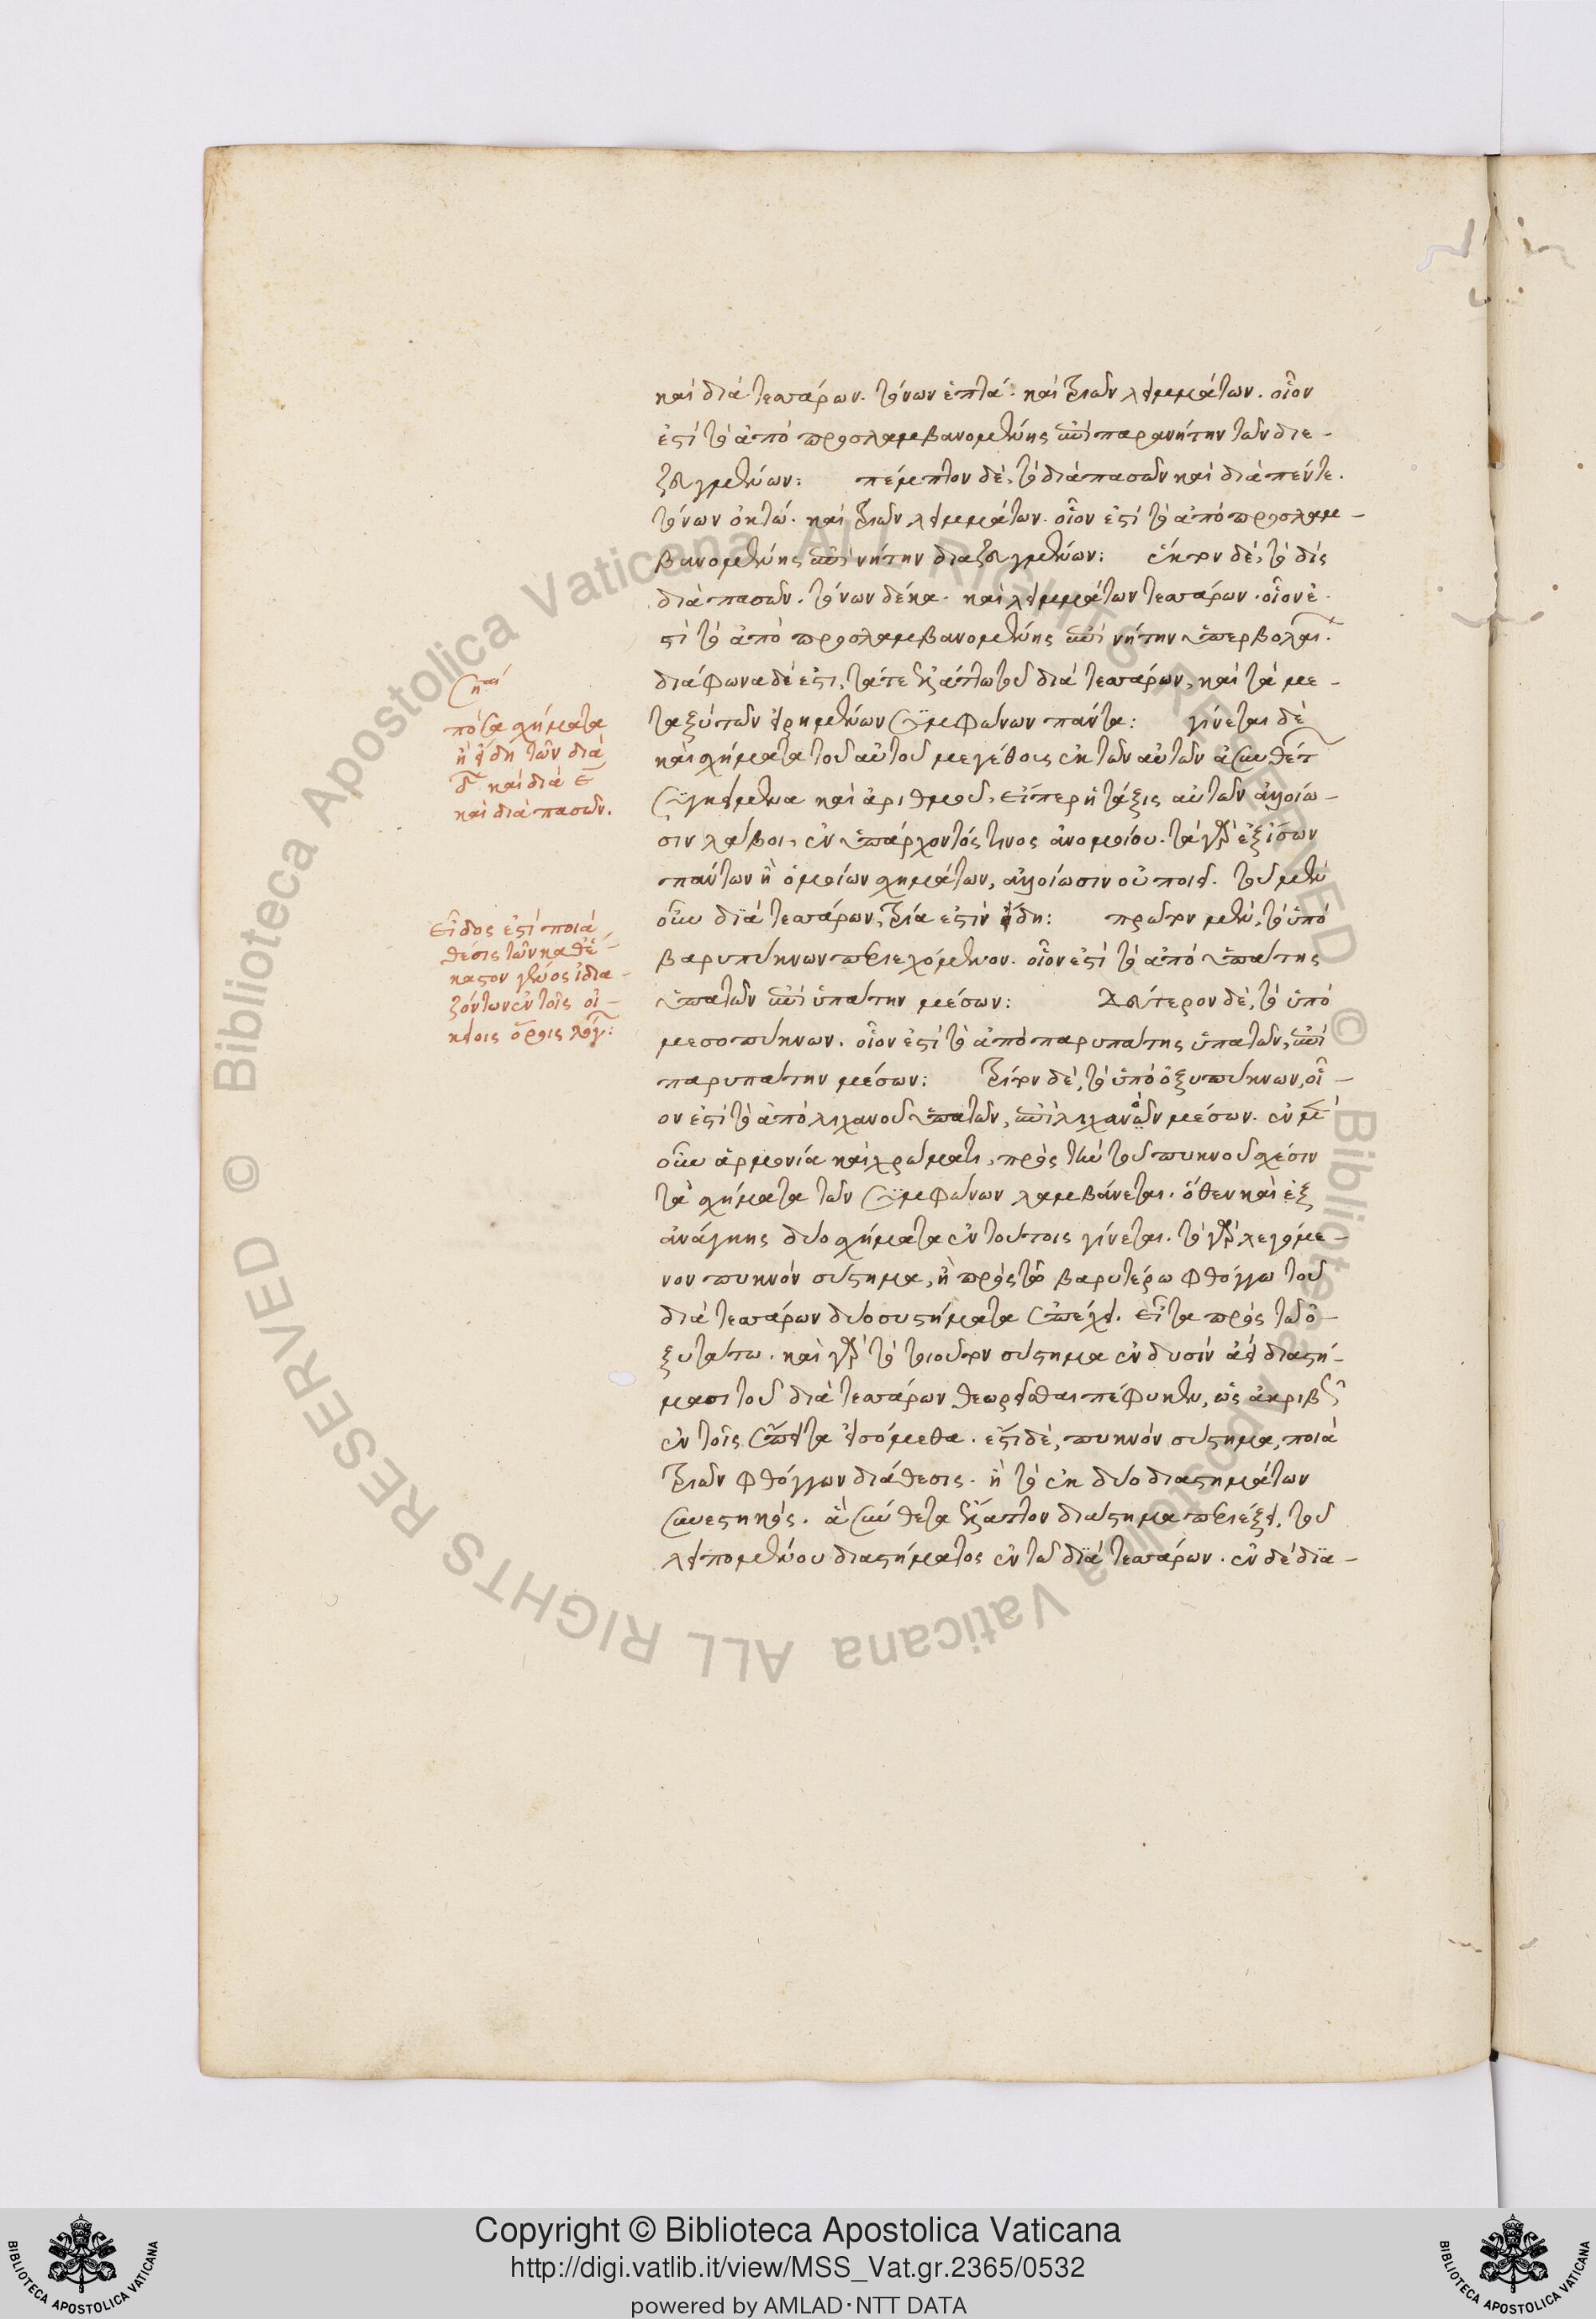 καὶ διὰ τεσσάρων. τόνων ἑπτά· καὶ τριῶν λειμμάτων. οἷον
ἐστὶ τὸ ἀπὸ προσλαμβανομένης ἐπὶ παρανήτην τῶν διε-
ζευγμένων: πέμπτον δὲ, τὸ διὰ πασῶν καὶ διὰ πέντε.
τόνων ὀκτώ. καὶ τριῶν λειμμάτων. οἷον ἐστὶ τὸ ἀπὸ προσλαμ-
βανομένης ἐπὶ νήτην διεζευγμένων: ἕκτον δὲ, τὸ δὶς
διὰ πασῶν. τόνων δέκα. καὶ λειμμάτων τεσσάρων. οἷον ἐ-
στὶ τὸ ἀπὸ προσλαμβανομένης ἐπὶ νήτην ὑπερβολαί.
διάφωνα δέ ἐστι, τά τε ἐλάττω τοῦ διὰ τεσσάρων, καὶ τὰ με-
ταξὺ τῶν εἰρημένων συμφώνων πάντα: γίνεται δὲ
καὶ σχήματα τοῦ αὐτοῦ μεγέθους ἐκ τῶν αὐτῶν ἀσυνθέτ
συγκείμενα καὶ ἀριθμοῦ, εἴπερ ἡ τάξις αὐτῶν ἀλοίω-
σιν λάβοι, ἐν ὑπάρχοντός τινος ἀνομοίου. τὰ γὰρ ἐξ ἴσων
πάντων ἢ ὁμοίων σχημάτων, ἀλοίωσιν οὐ ποιεῖ. τοῦ μὲν
οὖν διὰ τεσσάρων, τρία ἐστὶν εἴδη: πρῶτον μὲν, τὸ ὑπὸ
βαρυπύκνων περιεχόμενον. οἷον ἐστὶ τὸ ἀπὸ ὑπάτης
ὑπατῶν ἐπὶ ὑπάτην μέσων: δεύτερον δὲ, τὸ ὑπὸ
μεσοπύκνων. οἷον ἐστὶ τὸ ἀπὸ παρυπάτης ὑπατῶν, ἐπὶ
παρυπάτην μέσων: τρίτον δὲ, τὸ ὑπὸ ὀξυπύκνων, οἷ-
ον ἐστὶ τὸ ἀπὸ λιχανοῦ ὑπατῶν, ἐπὶ λιχανὸν μέσων. ἐν μὲν
οὖν ἁρμονία καὶ χρώματι, πρὸς τὴν τοῦ πυκνοῦ σχέσιν
τὰ σχήματα τῶν συμφώνων λαμβάνεται. ὅθεν καὶ ἐξ
ἀνάγκης δύο σχήματα ἐν τούτοις γίνεται. τὸ γὰρ λεγόμε-
νον πυκνὸν σύστημα, ἢ πρὸς τῶ βαρυτέρω φθόγγω τοῦ
διὰ τεσσάρων δύο συστήματα ἐπέχει. εἶτα πρὸς τῶ ὀ-
ξυτάτω. καὶ γὰρ τὸ τοιοῦτον σύστημα ἐν δυσὶν ἀεὶ διαστή-
μασι τοῦ διὰ τεσσάρων θεωρεῖσθαι πέφυκεν, ὡς ἀκριβῶς
ἐν τοῖς ἔπειτα εἰσόμεθα. ἔστι δὲ, πυκνὸν σύστημα, ποιὰ
τριῶν φθόγγων διάθεσις. ἢ τὸ ἐκ δύο διαστημάτων
συνεστηκός. ἃ συνθετα ἔλαττον διάστημα περιέξει, τοῦ
λειπομένου διαστήματος ἐν τῶ διὰ τεσσάρων. ἐν δὲ δια-
πόσα σχήματα
ἢ εἴδη τῶν διὰ
δ καὶ διὰ ε
καὶ διὰ πασῶν.
Εἶδος ἐστὶ ποιὰ
θέσις τῶν καθέ-
καστον γένος ἰδια-
ζόντων ἐν τοῖς οἰ-
κείοις ὅροις λόγ:
Copyright © Biblioteca Apostolica Vaticana
http://digi.vatlib.it/view/MSS_Vat.gr.2365/0532
powered by AMLAD·NTT DATA
BIBLIOTECA APOSTOLICA VATICANA
BIBLIOTECA APOSTOLICA VATICANA
© Biblioteca Apostolica Vaticana ALL RIGHTS RESERVED © Biblioteca Apostolica Vaticana ALL RIGHTS RESERVED